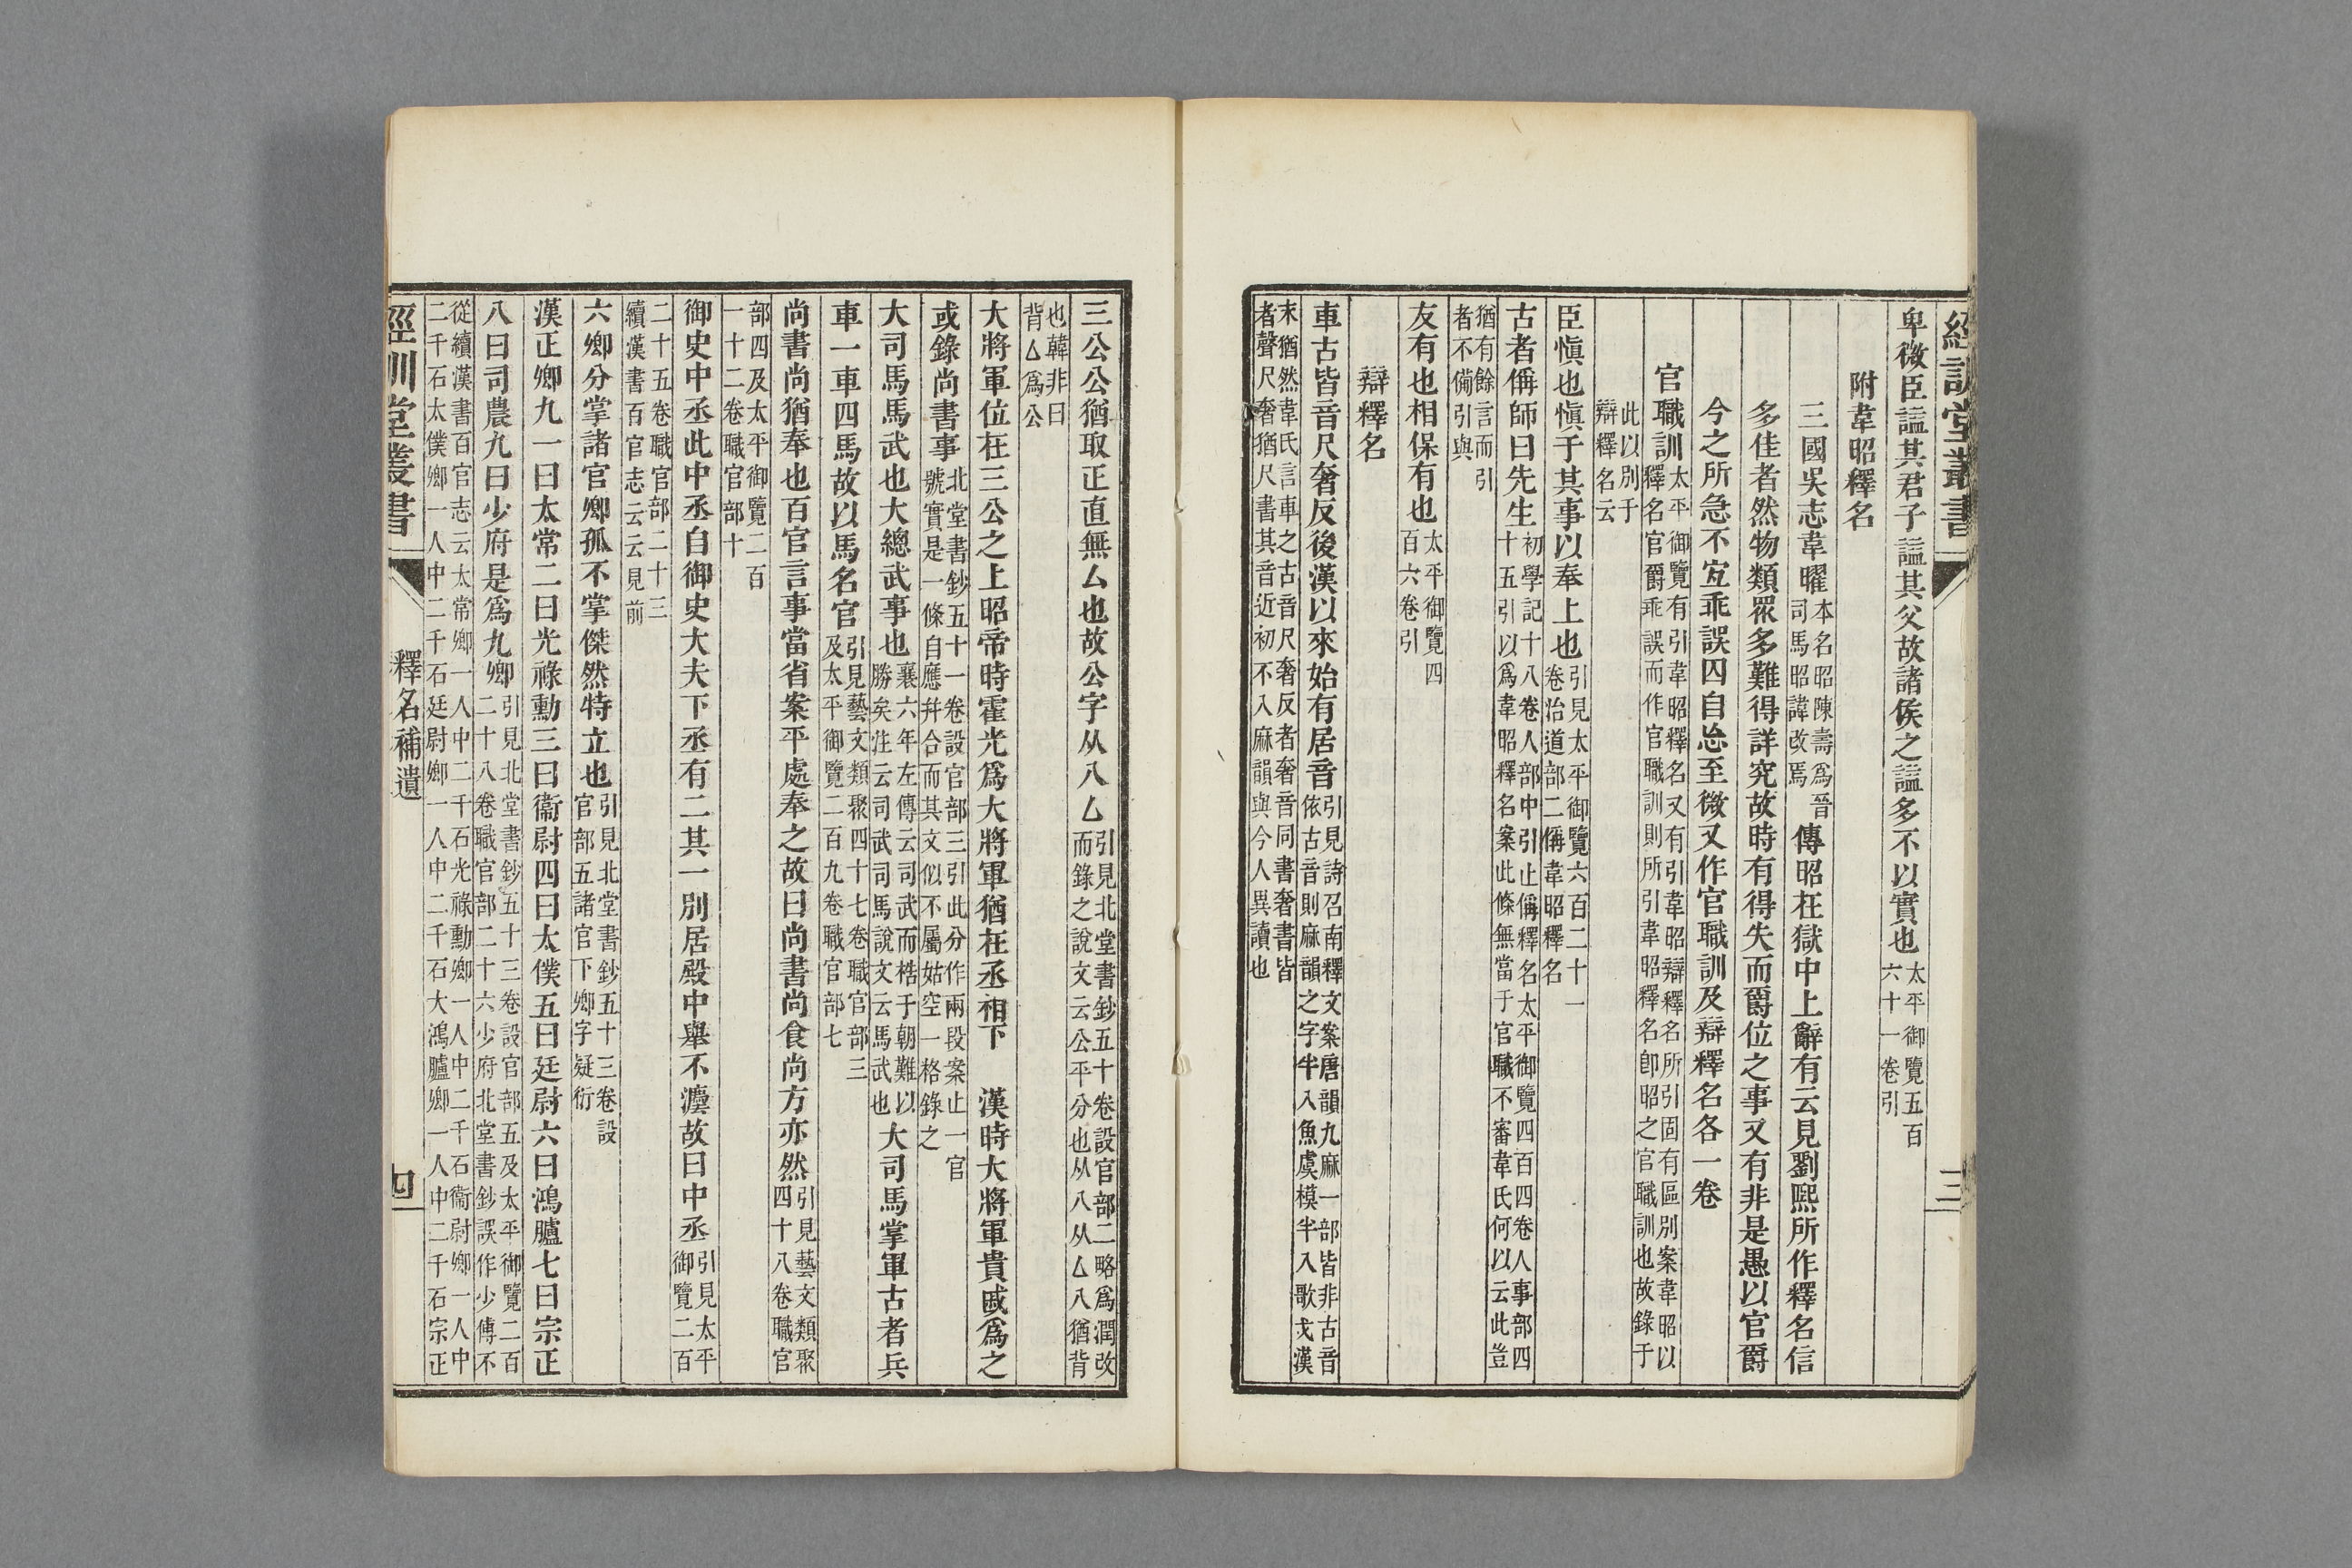 經訓堂叢書　三
卑微臣諡其君子諡其父故諸侯之諡多不以實也太平御覽五百六十一卷引
附韋昭釋名
三國吳志韋曜本名昭陳壽爲晉司馬昭諱改焉傳昭在獄中上辭有云見劉熙所作釋名信
多佳者然物類眾多難得詳究故時有得失而爵位之事又有非是愚以官爵
今之所急不宐乖誤囚自忘至微又作官職訓及辯釋名各一卷
官職訓太平御覽有引韋昭釋名又有引韋昭辯釋名所引固有區別案韋昭以釋名官爵乖誤而作官職訓則所引韋昭釋名卽昭之官職訓也故錄于
此以別于辯釋名云
臣愼也愼于其事以奉上也引見太平御覽六百二十一卷治道部二偁韋昭釋名
古者偁師曰先生初學記十八卷人部中引止偁釋名太平御覽四百四卷人事部四十五引以爲韋昭釋名案此條無當于官職不審韋氏何以云此豈
猶有餘言而引者不備引與
友有也相保有也太平御覽四百六卷引
辯釋名
車古皆音尺奢反後漢以來始有居音引見詩召南釋文案唐韻九麻一部皆非古音依古音則麻韻之字半入魚虞模半入歌戈漢
末猶然韋氏言車之古音尺奢反者奢音同書奢書皆者聲尺奢猶尺書其音近初不入麻韻與今人異讀也
三公公猶取正直無厶也故公字从八厶引見北堂書鈔五十卷設官部二略爲潤改而錄之說文云公平分也从八从厶八猶背
也韓非曰背厶爲公
大將軍位在三公之上昭帝時霍光爲大將軍猶在丞相下　漢時大將軍貴戚爲之
或錄尚書事北堂書鈔五十一卷設官部三引此分作兩段案止一官號實是一條自應幷合而其文似不屬姑空一格錄之
大司馬馬武也大總武事也襄六年左傳云司武而梏于朝難以勝矣注云司武司馬說文云馬武也大司馬掌軍古者兵
車一車四馬故以馬名官引見藝文類聚四十七卷職官部三及太平御覽二百九卷職官部七
尚書尚猶奉也百官言事當省案平處奉之故曰尚書尚食尚方亦然引見藝文類聚四十八卷職官
部四及太平御覽二百一十二卷職官部十
御史中丞此中丞自御史大夫下丞有二其一別居殿中舉不灋故曰中丞引見太平御覽二百
二十五卷職官部二十三續漢書百官志云云見前
六卿分掌諸官卿孤不掌傑然特立也引見北堂書鈔五十三卷設官部五諸官下卿字疑衍
漢正卿九一曰太常二曰光祿勳三曰衞尉四曰太僕五曰廷尉六曰鴻臚七曰宗正
八曰司農九曰少府是爲九卿引見北堂書鈔五十三卷設官部五及太平御覽二百二十八卷職官部二十六少府北堂書鈔誤作少傅不
從續漢書百官志云太常卿一人中二千石光祿勳卿一人中二千石衞尉卿一人中二千石太僕卿一人中二千石廷尉卿一人中二千石大鴻臚卿一人中二千石宗正
經訓堂叢書　釋名補遺　四